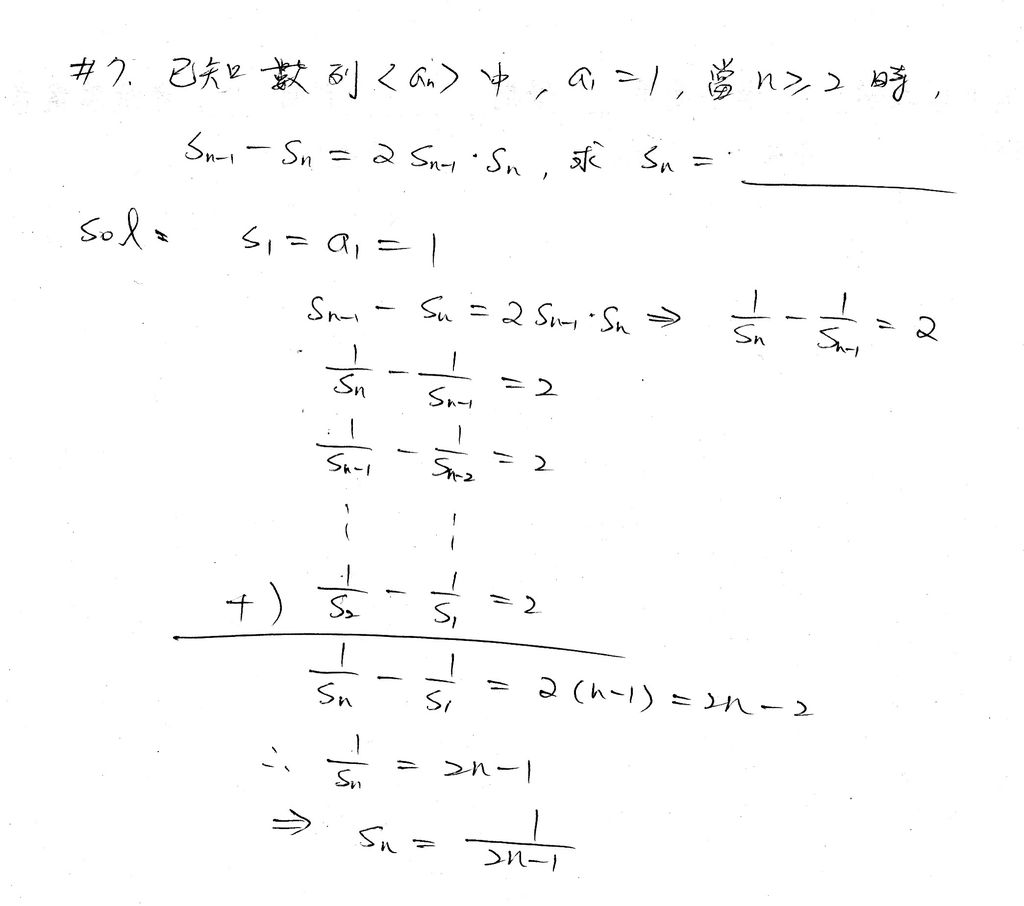 #7. 已知數列<aₙ>中, a₁=1, 當 n≥2 時,
Sₙ₋₁ - Sₙ = 2Sₙ₋₁·Sₙ, 求 Sₙ = ______
Sol: S₁ = a₁ = 1
Sₙ₋₁ - Sₙ = 2Sₙ₋₁·Sₙ ⇒ 1/Sₙ - 1/Sₙ₋₁ = 2
1/Sₙ - 1/Sₙ₋₁ = 2
1/Sₙ₋₁ - 1/Sₙ₋₂ = 2
⋮ ⋮
+) 1/S₂ - 1/S₁ = 2
1/Sₙ - 1/S₁ = 2(n-1) = 2n-2
∴ 1/Sₙ = 2n-1
⇒ Sₙ = 1/(2n-1)